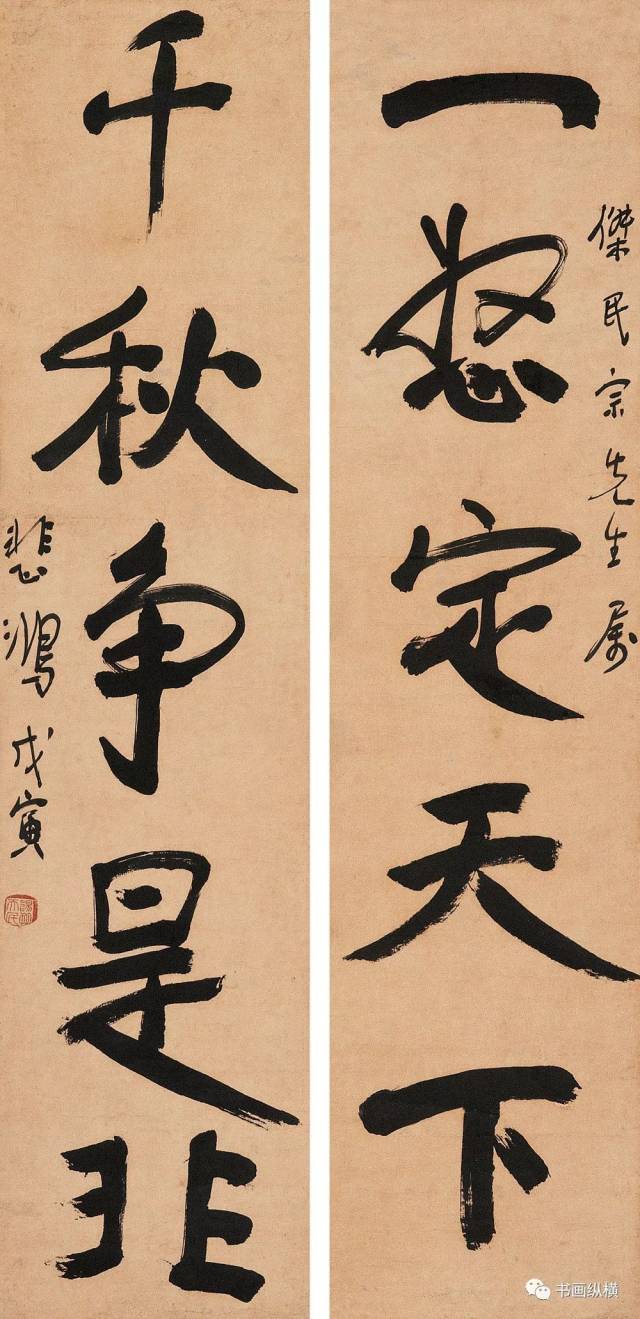 一怒定天下
傑民宗先生属
千秋争是非
悲鴻 戊寅
书画纵横